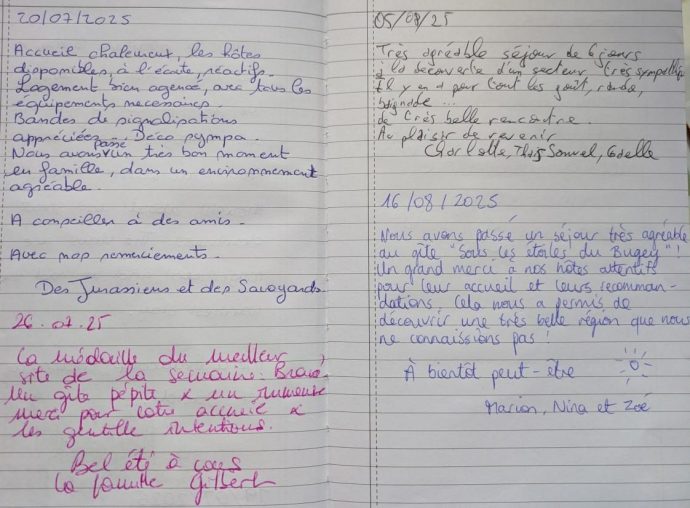 20/07/2025
Accueil chaleureux, les hôtes
disponibles, à l'écoute, réactifs.
Logement bien agencé, avec tous les
équipements nécessaires.
Bandes de signalisations
appréciées. Déco sympa.
Nous avons passé un très bon moment
en famille, dans un environnement
agréable.
A conseiller à des amis.
Avec nos remerciements.
Des Jurassiens et des Savoyards
26.07.25
La médaille du meilleur
gîte de la semaine. Bravo.
Un gîte pépite & un immense
merci pour votre accueil &
les gentille intentions.
Bel été à vous
La famille Gilbert
05/08/25
Très agréable séjour de 6 jours
à la découverte d'un secteur très sympathique
Il y en a pour tout les goût, rando,
baignade...
de très belle rencontre.
Au plaisir de revenir
Charlotte,
16/08/2025
Nous avons passé un séjour très agréable
au gîte "Sous les étoiles du Bugey" !
Un grand merci à nos hôtes attentifs
pour leur accueil et leurs recomman-
dations. Cela nous a permis de
découvrir une très belle région que nous
ne connaissions pas !
À bientôt peut-être
Marion, Nina et Zoé